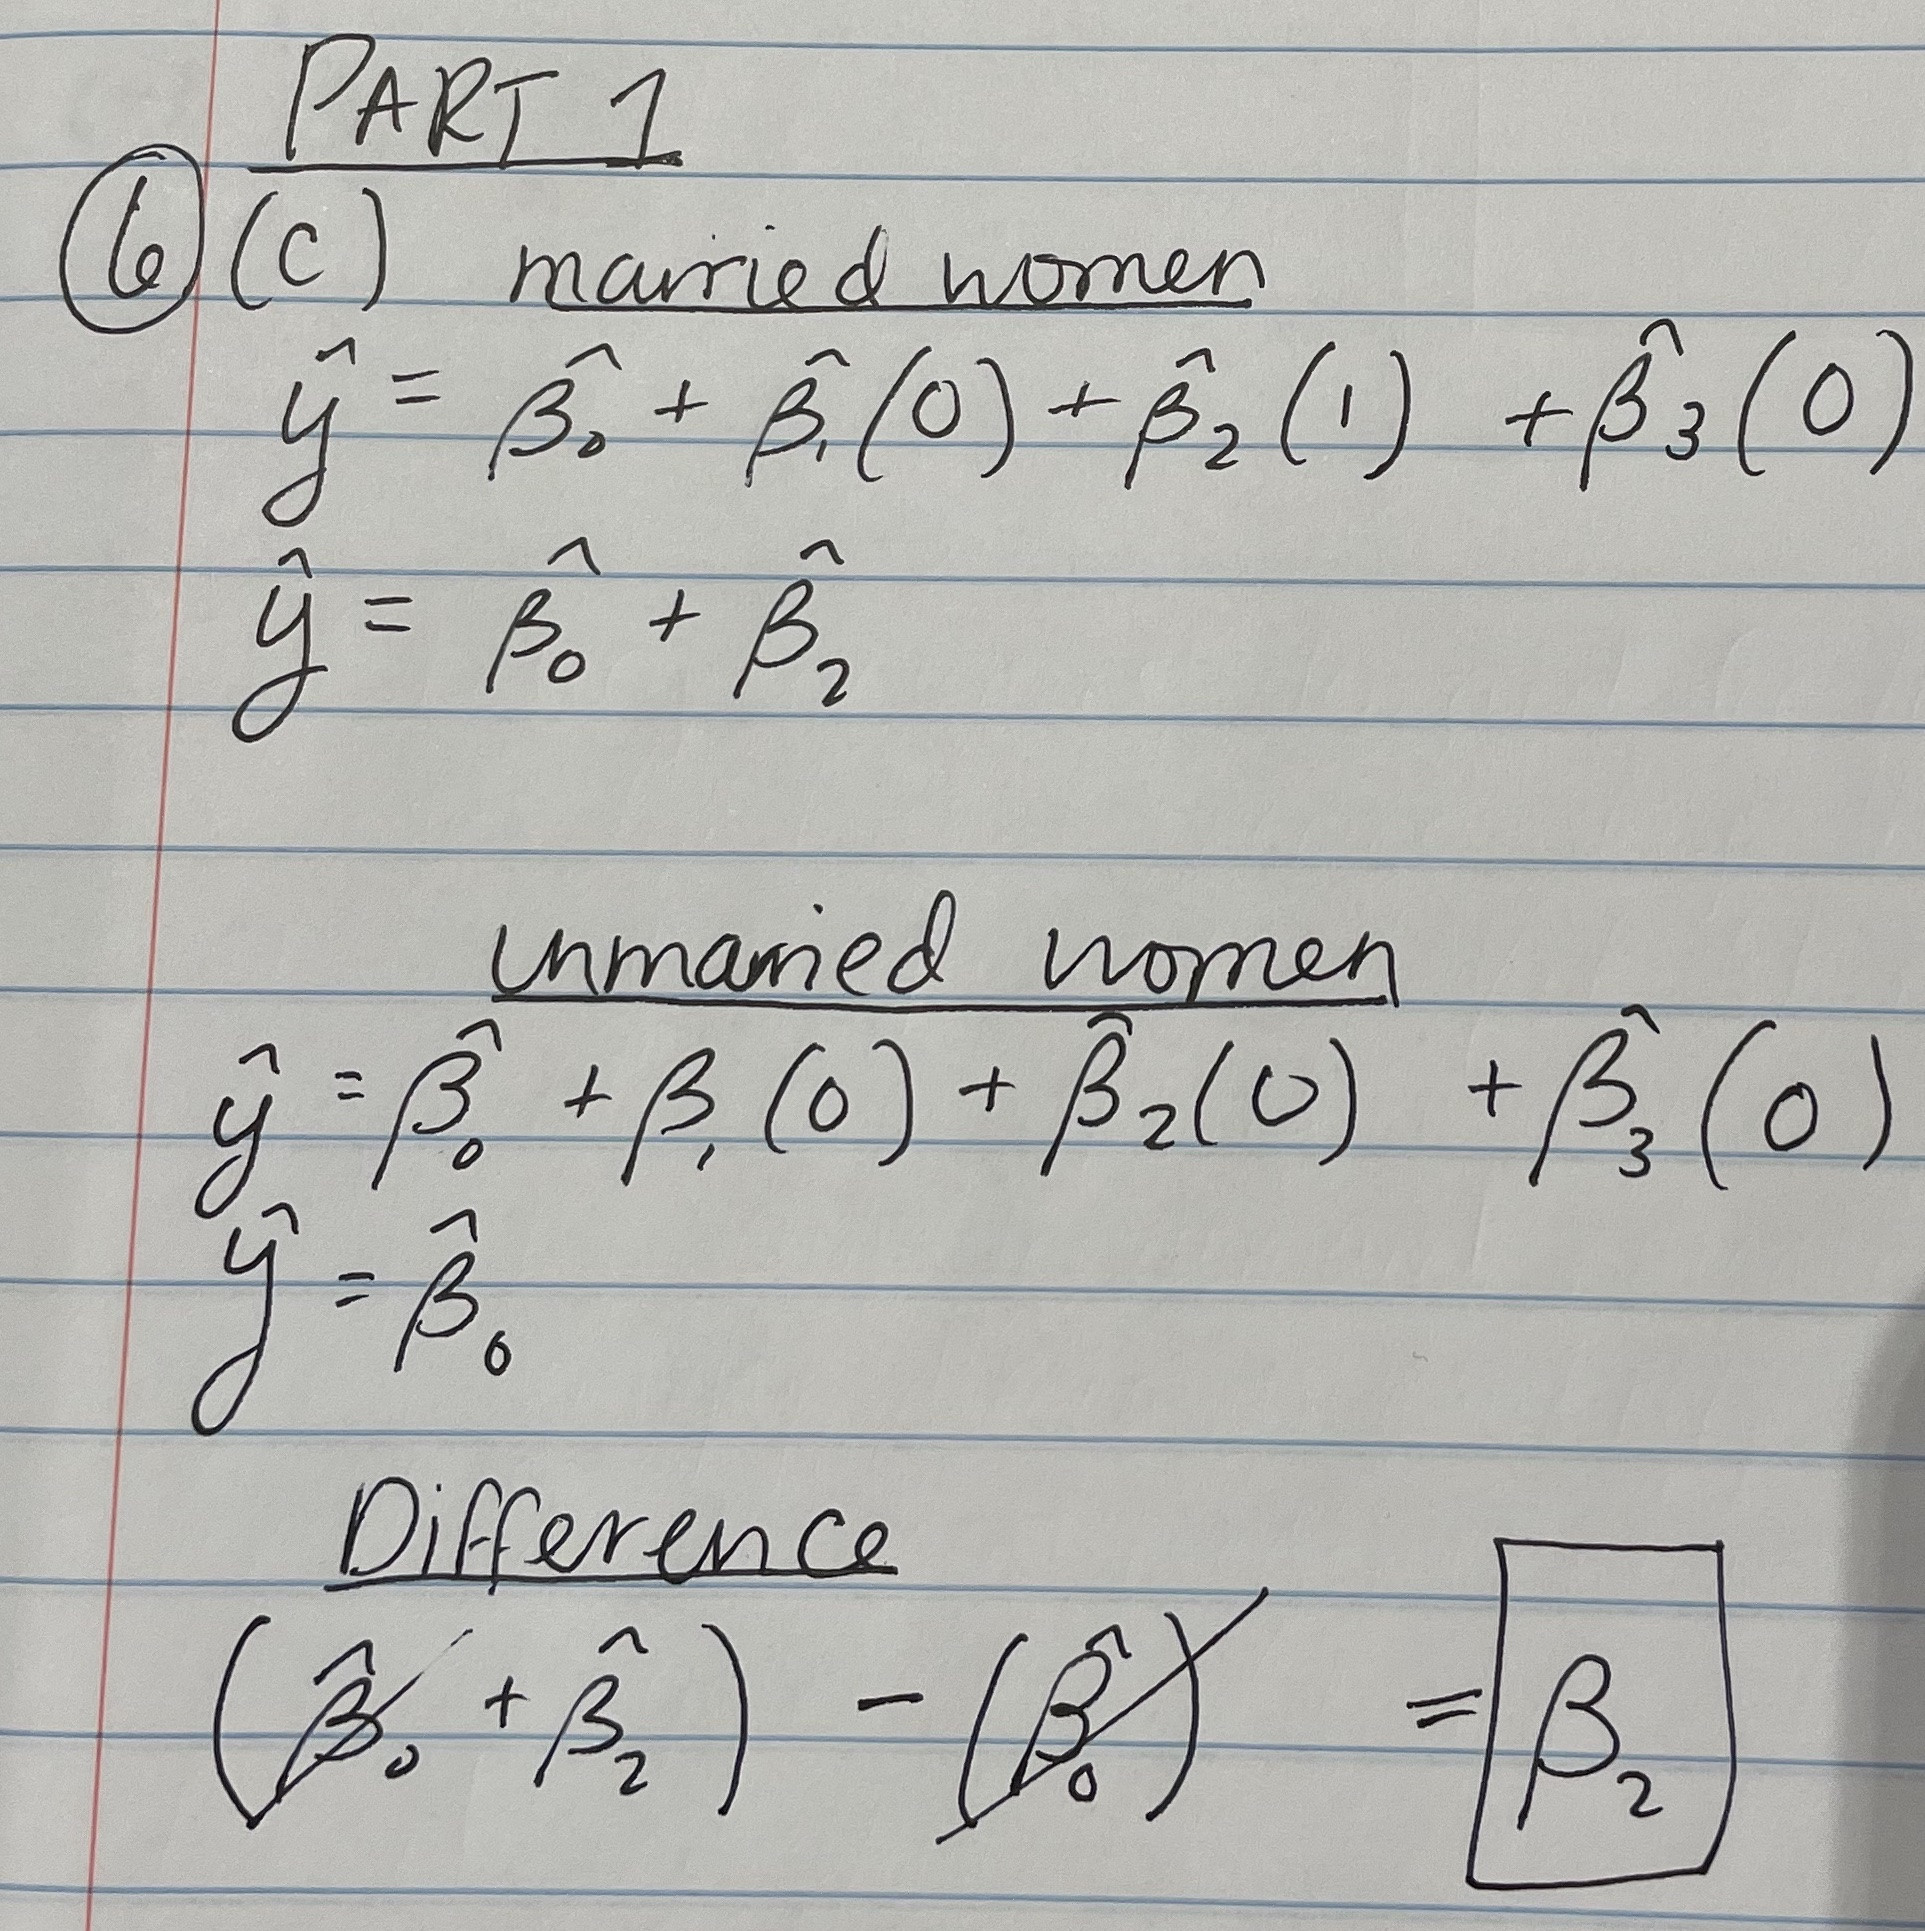 PART 1
6 (c) married women
ŷ = β̂₀ + β̂₁(0) + β̂₂(1) + β̂₃(0)
ŷ = β̂₀ + β̂₂
unmarried women
ŷ = β̂₀ + β₁(0) + β̂₂(0) + β̂₃(0)
ŷ = β̂₀
Difference
(β̂₀ + β̂₂) - (β̂₀) = β₂